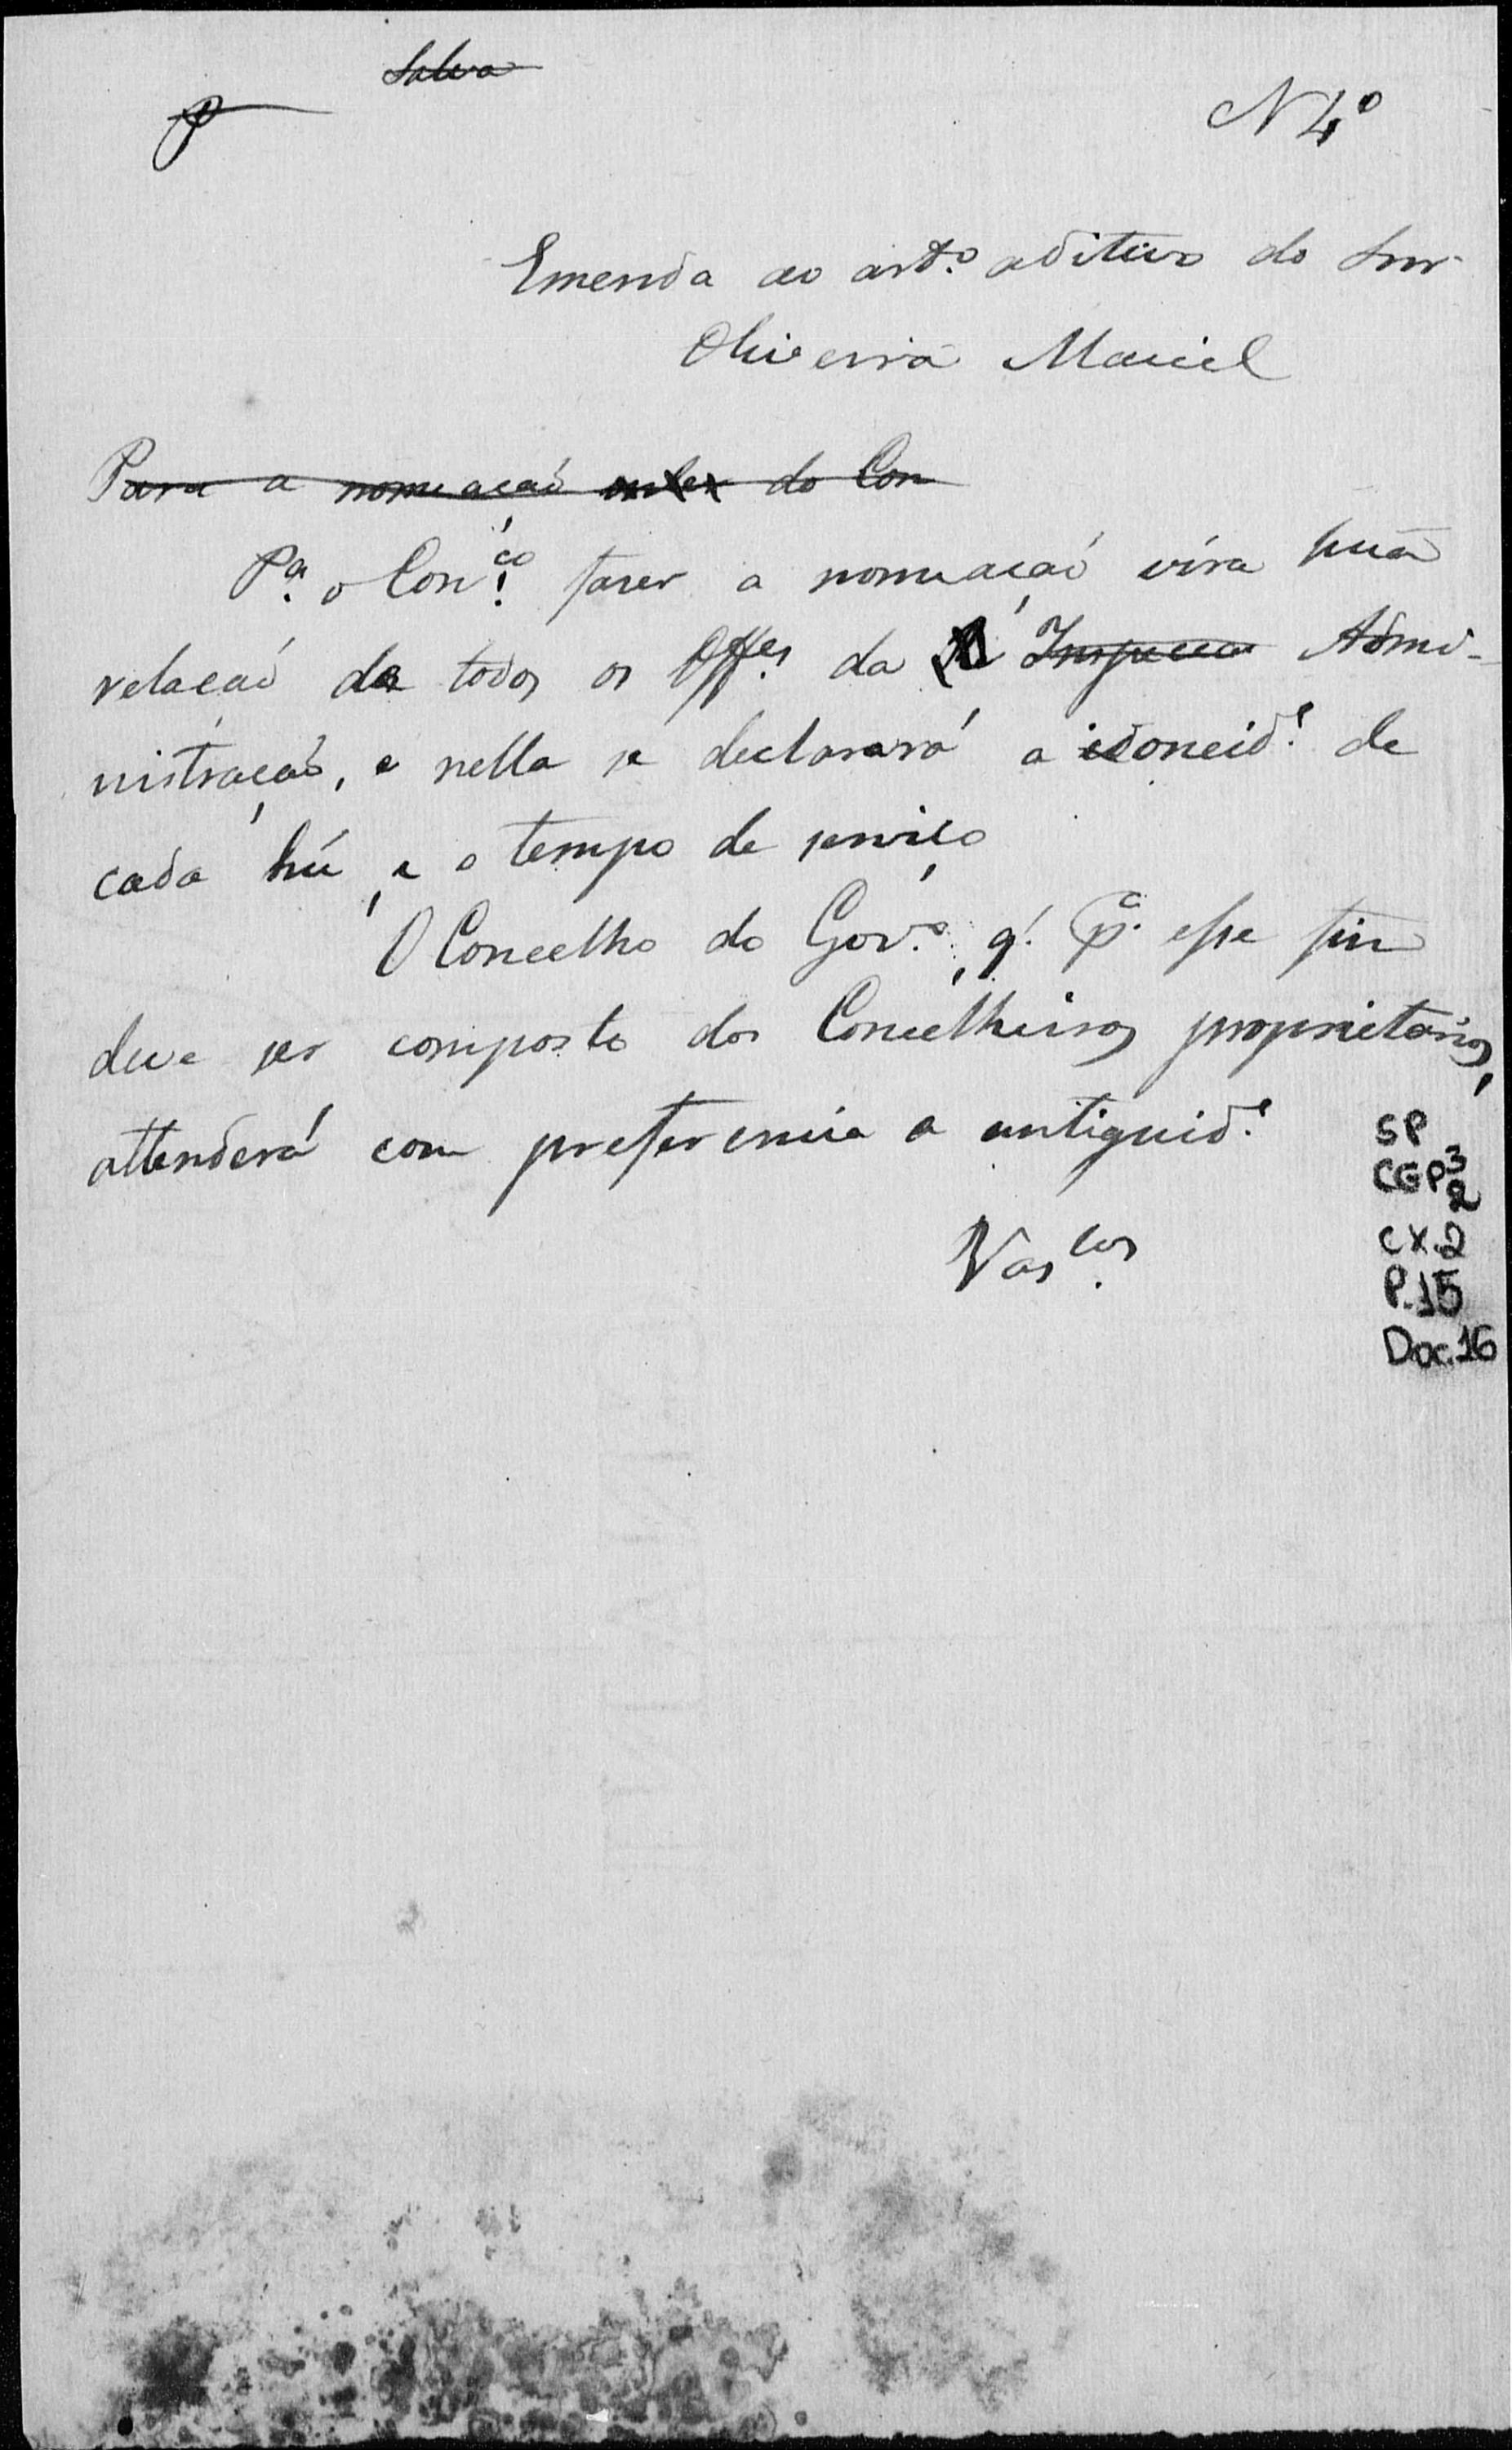 Salva
P
N 4º
Emenda ao artº aditivo do Snr
Oliveira Maciel
Para a nomeaçaõ do Con
Pª o Conçº fazer a nomeaçaõ virá huã
relaçaõ de todos os Offes da Inspecca Admi-
nistraçaõ, e nella se declarará a idoneide de
cada hũ, e o tempo de serviço
O Concelho do Govº, q' pª esse fim
deve ser composto dos Concelheiros proprietarios,
attenderá com preferencia a antiguide
Vascos
SP
CGP3
2
CX.2
P.15
Doc.16